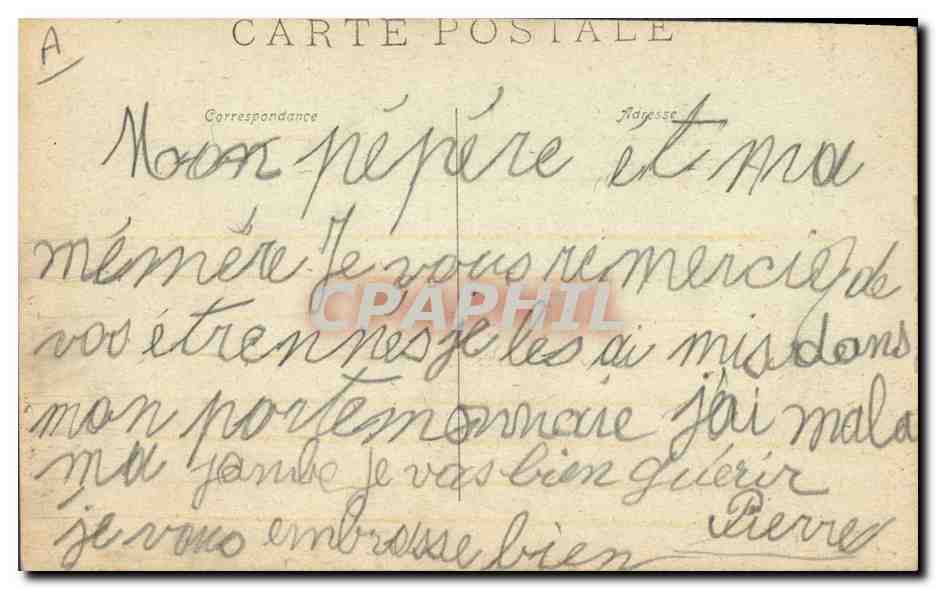 A
CARTE POSTALE
Correspondance
Adresse
Mon pépére et ma
mémére Je vous remercie de
vos étrennes je les ai mis dans
mon portemonnaie j'ai mal a
ma jambe je vas bien guérir
je vous embrasse bien Pierre
CPAPHIL